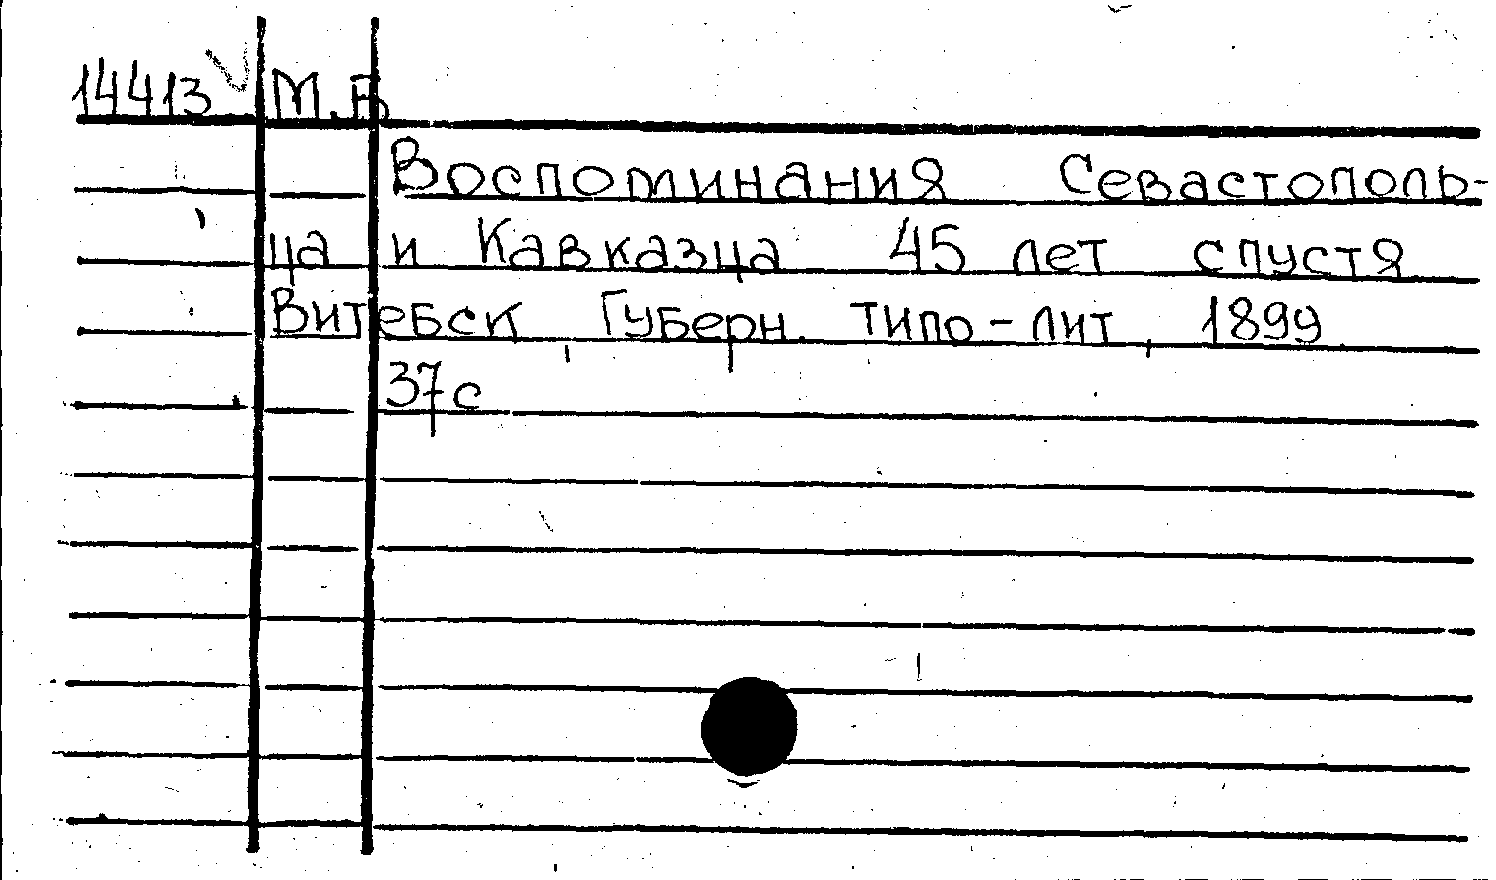 14413 М.В
Воспоминания Севастополь-
ца и Кавказца 45 лет спустя
Витебск, Губерн. типо-лит, 1899
37с